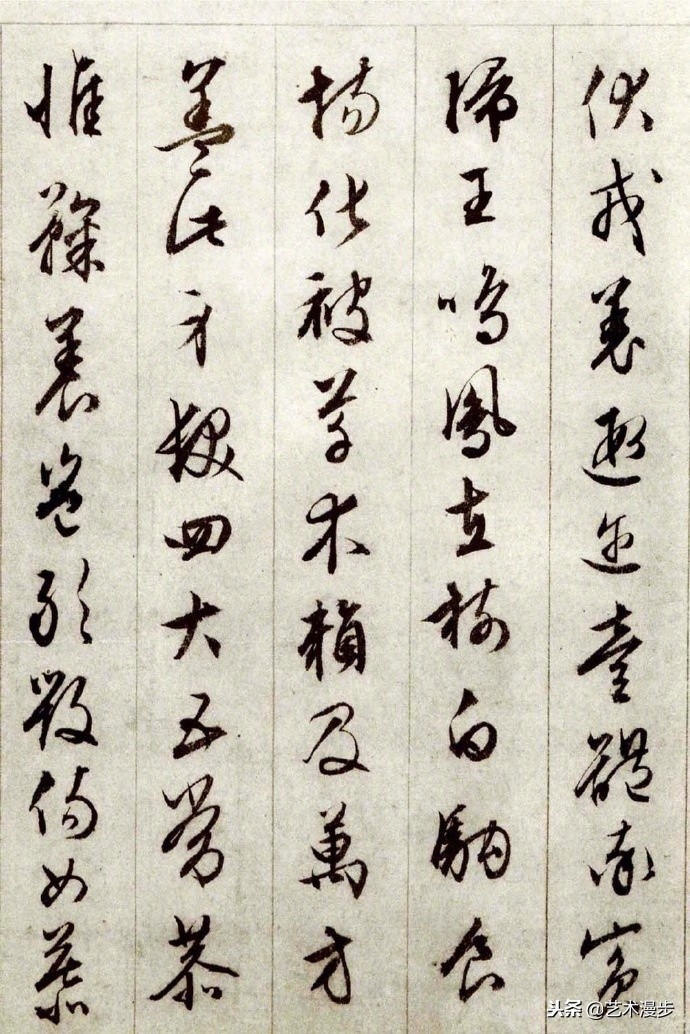 伏戎羌遐迩壹體率賓
歸王鳴鳳在樹白駒食
場化被草木賴及萬方
蓋此身髮四大五常恭
惟鞠養豈敢毀傷女慕
头条 @艺术漫步